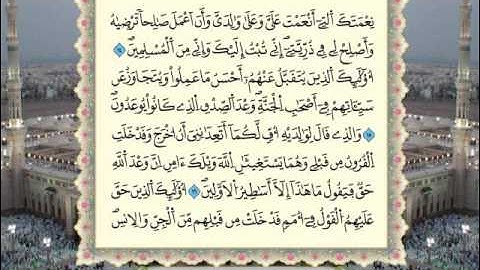 نِعْمَتَكَ اَ۬لتِےٓ أَنْعَمْتَ عَلَيَّ وَعَلَىٰ وَٰلِدَيَّ وَأَنَ اَعْمَلَ صَٰلِحاٗ تَرْض۪يٰهُ
وَأَصْلِحْ لِے فِے ذُرِّيَّتِيَۖ إِنِّے تُبْتُ إِلَيْكَ وَإِنِّے مِنَ اَ۬لْمُسْلِمِينَۖ ١٤
أُوْلَٰٓئِكَ اَ۬لذِينَ يُتَقَبَّلُ عَنْهُمُۥٓ أَحْسَنُ مَا عَمِلُواْ وَيُتَجَاوَزُ عَن
سَيِّـَٔاتِهِمْ فِےٓ أَصْحَٰبِ اِ۬لْجَنَّةِۖ وَعْدَ اَ۬لصِّدْقِ اِ۬لذِے كَانُواْ يُوعَدُونَۖ
١٥ وَالذِے قَالَ لِوَٰلِدَيْهِ أُفّٖ لَّكُمَآ أَتَعِدَٰنِنِيَ أَنُ اخْرَجَ وَقَدْ خَلَتِ
اِ۬لْقُرُونُ مِن قَبْلِے وَهُمَا يَسْتَغِيثَٰنِ اِ۬للَّهَ وَيْلَكَ ءَامِنِ اِنَّ وَعْدَ اَ۬للَّهِ
حَقّٞ فَيَقُولُ مَا هَٰذَآ إِلَّآ أَسَٰطِيرُ اُ۬لَاوَّلِينَۖ ١٦ أُوْلَٰٓئِكَ اَ۬لذِينَ حَقَّ
عَلَيْهِمُ اُ۬لْقَوْلُ فِےٓ أُمَمٖ قَدْ خَلَتْ مِن قَبْلِهِم مِّنَ اَ۬لْجِنِّ وَالِانسِۖ